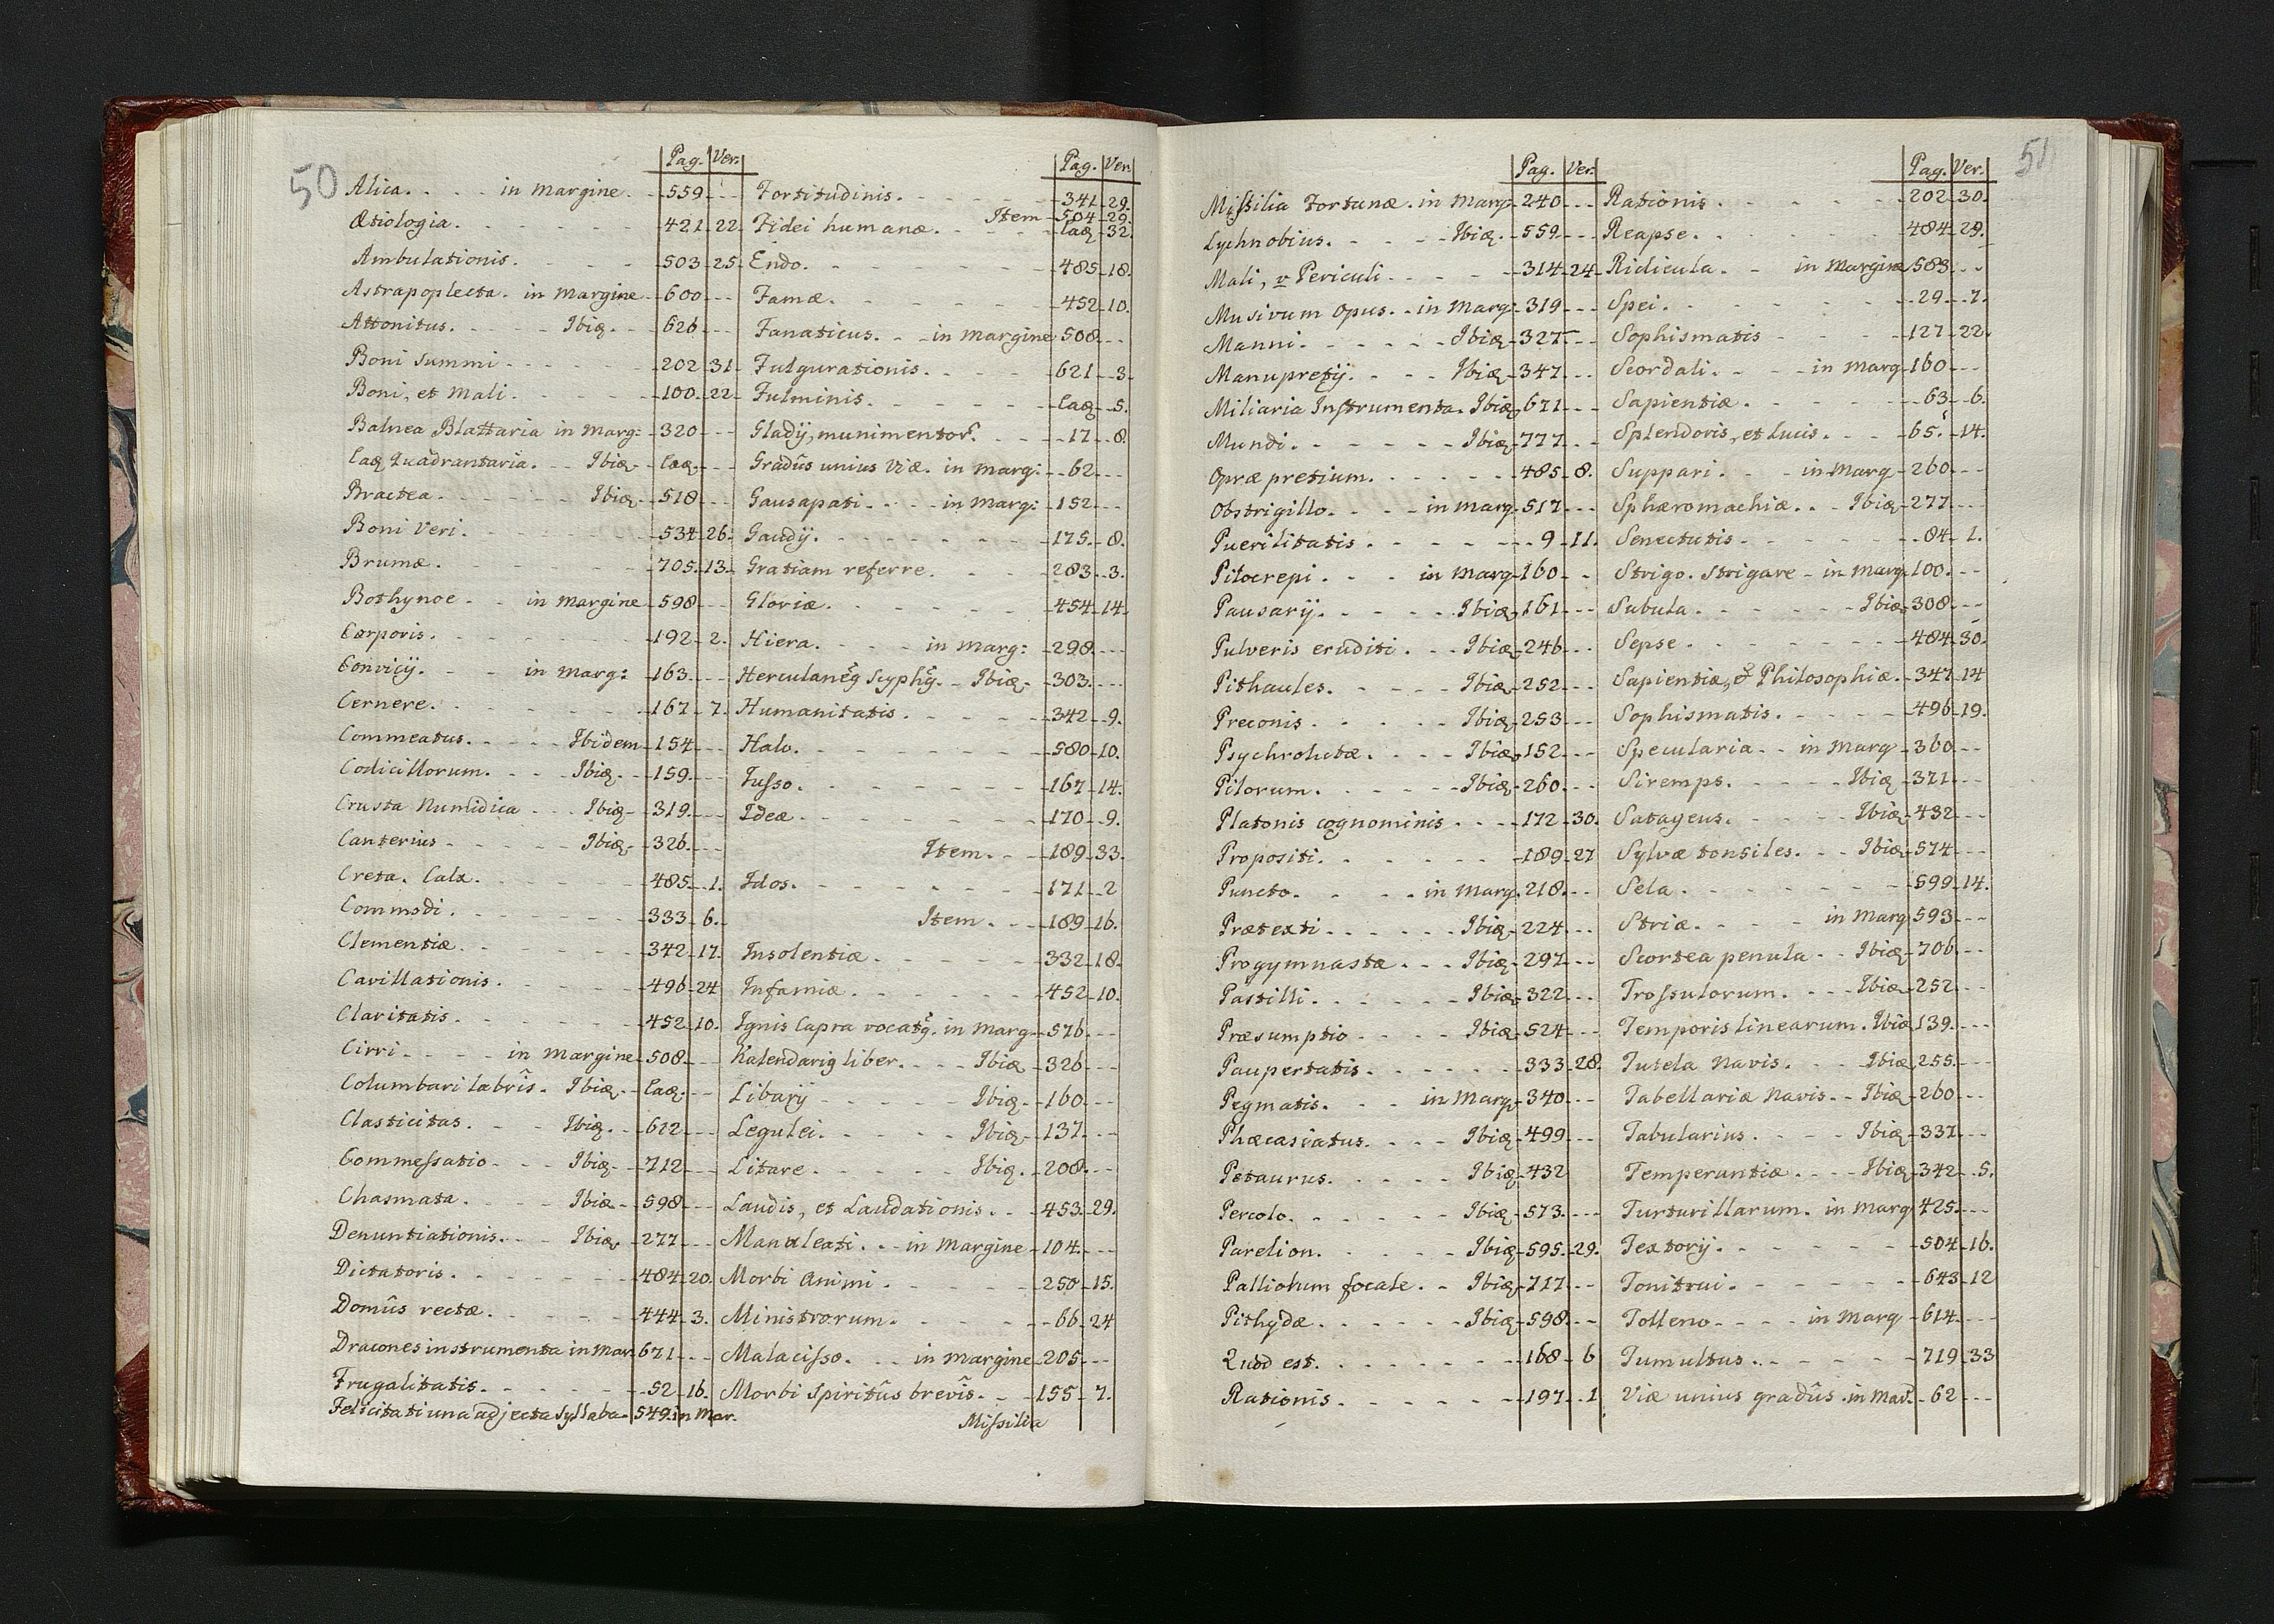 50
Pag. Ver.
Alica. in margine 559
Ætiologia. 421 22
Ambulationis. 503 25
Astrapoplecta. in margine 600
Attonitus. Ibiq. 626
Boni summi 202 31
Boni, et mali 100 22
Balnea Blattaria in marg: 320
Eaq quadrantaria. Ibiq. Eaq.
Bractea. Ibiq. 518
Boni Veri. 534 26.
Brumæ. 705. 13.
Bothynoe in margine 598
Corporis. 192 2.
Convicij. in marg: 163.
Cernere. 167 7.
Commeatus. Ibidem 154
Codicillorum. Ibiq. 159.
Crusta Numidica Ibiq. 319.
Canterius Ibiq. 326.
Creta. Calx. 485. 1.
Commodi. 333 6.
Clementiæ. 342 17.
Cavillationis. 496 24
Claritatis. 452 10.
Cirri in margine 508
Columbari labris. Ibiq. Eaq.
Clasticitas. Ibiq. 612
Commessatio Ibiq. 712
Chasmata. Ibiq. 598
Denuntiationis. Ibiq. 277
Dictatoris. 484 20.
Domûs rectæ. 444 3.
Dracones instrumenta in mar. 671
Frugalitatis. 52 16.
Felicitati una adjecta syllaba. 549. in mar.
Pag. Ver.
Fortitudinis. 341 29.
Item 504 29.
Fidei humanæ. Eaq 32.
Endo. 485 18.
Famæ. 452 10.
Fanaticus. in margine 508.
Fulgurationis. 621 3.
Fulminis. Eaq 5.
Gladij, munimentor. 17 8.
Gradûs unius viæ. in marg: 62
Gausapati in marg: 152
Gaudij. 175. 8.
Gratiam referre. 283. 3.
Gloriæ. 454 14.
Hiera. in marg: 298.
Herculaneq Scyphq. Ibiq. 303.
Humanitatis. 342 9.
Halo. 580 10.
Jusso. 167 14.
Ideæ 170 9.
Item. 189 33.
Idos. 171 2
Item. 189 16.
Insolentiæ 332 18.
Infamiæ. 452 10.
Ignis Capra vocatq. in marg. 576.
Kalendariq liber. Ibiq 326
Libarij Ibiq. 160
Legulei. Ibiq. 137.
Litare. Ibiq. 208.
Laudis, et Laudationis. 453. 29.
Manuleati. in margine 104.
Morbi animi. 250 15.
Ministrorum. 66. 24
Malacisso. in margine 205
Morbi Spiritûs brevis. 155 7.
Missilia
51
Pag. Ver.
Missilia Fortunæ. in marg. 240
Lychnobius. Ibiq. 559
Mali, v Periculi 314 24
Musivum Opus. in marg. 319
Manni. Ibiq. 327
Manupretij. Ibiq. 347
Miliaria Instrumenta. Ibiq. 671
Mundi. Ibiq. 777
Opræ pretium. 485. 8.
Obstrigillo. in marg. 517
Puerilitatis. 9 11.
Pilocrepi. in marg. 160
Pausarij. Ibiq. 161
Pulveris eruditi. Ibiq. 246
Pithaules. Ibiq. 252
Preconis Ibiq. 253
Psychrolutæ. Ibiq. 152
Pilorum. Ibiq. 260
Platonis cognominis 172 30.
Propositi. 189 27
Puncto. in marg. 218.
Prætexti Ibiq. 224
Progymnastæ. Ibiq. 297
Pastilli. Ibiq. 322
Præsumptio Ibiq. 524
Paupertatis. 333 28.
Pegmatis. in marg. 340
Phæcasiatus. Ibiq. 499
Petaurus. Ibiq. 432
Percolo. Ibiq. 573
Parelion. Ibiq. 595. 29.
Palliolum focale. Ibiq. 717
Pithydæ. Ibiq. 598
Quod est. 168 6
Rationis. 197 1
Pag. Ver.
Rationis. 202 30.
Reapse. 484 29.
Ridicula. in margine 583
Spei. 29 7.
Sophismatis 127 22.
Scordali. in marg. 160
Sapientiæ. 63 6.
Splendoris, et lucis. 65. 14.
Suppari. in marg. 260
Sphæromachiæ. Ibiq. 277
Senectutis. 84 1.
Strigo. Strigare in marg. 100.
Subula. Ibiq. 308
Sepse 484 30.
Sapientiæ, & Philosophiæ. 347 14
Sophismatis. 496 19.
Specularia in marg. 360
Siremps. Ibiq. 371
Satageus. Ibiq. 432
Sylvæ tonsiles. Ibiq. 574
Sela. 599 14.
Striæ. in marg 593
Scortea penula. Ibiq. 706
Trossulorum. Ibiq. 252
Temporis linearum. Ibiq. 139.
Tutela Navis. Ibiq. 255.
Tabellariæ Navis. Ibiq. 260
Tabularius. Ibiq. 337.
Temperantiæ. Ibiq. 342 5.
Turturillarum. in marg 425.
Textorij. 504 16.
Tonitrui. 643 12
Tolleno. in marg 614.
Tumultus. 719 33
Viæ unius gradûs in mar. 62